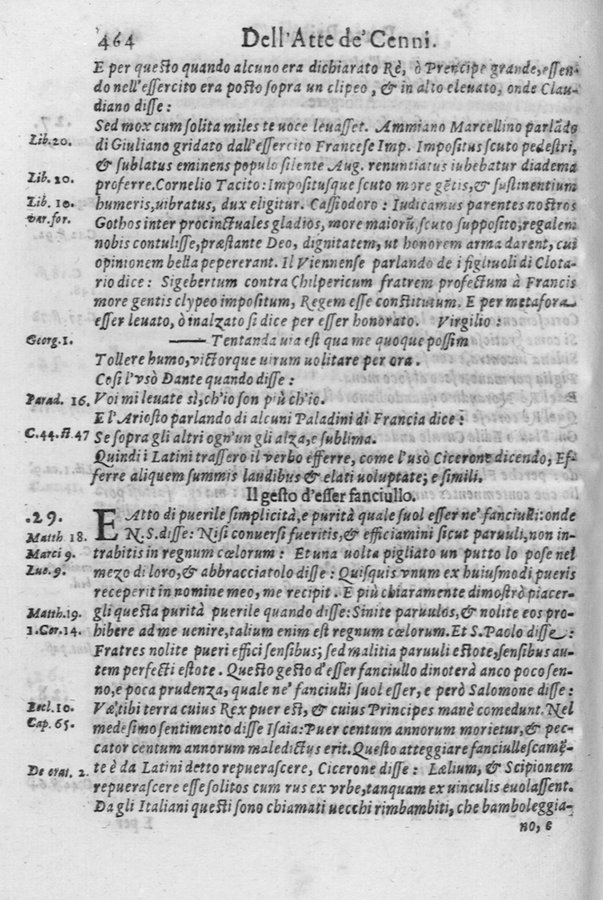 464 Dell'Atte de' Cenni.
E per questo quando alcuno era dichiarato Rè, ò Prencipe grande, essen-
do nell'essercito era posto sopra un clipeo, & in alto eleuato, onde Clau-
diano disse:
Sed mox cum solita miles te uoce leuasset. Ammiano Marcellino parlãdo
Lib. 20. di Giuliano gridato dall'essercito Francese Imp. Impositus scuto pedestri,
& sublatus eminens populo silente Aug. renuntiatus iubebatur diadema
Lib. 20. proferre. Cornelio Tacito: Impositusque scuto more gẽtis, & sustinentium
Lib. 10. humeris, uibratus, dux eligitur. Cassiodoro: Iudicamus parentes nostros
var. for. Gothos inter procinctuales gladios, more maiorũ, scuto supposito, regalem
nobis contulisse, præstante Deo, dignitatem, ut honorem arma darent, cui
opinionem bella pepererant. Il Viennense parlando de i figliuoli di Clota-
rio dice: Sigebertum contra Chilpericum fratrem profectum à Francis
more gentis clypeo impositum, Regem esse constitutum. E per metafora
esser leuato, ò inalzato si dice per esser honorato. Virgilio:
Georg. 1. —— Tentanda uia est qua me quoque possim
Tollere humo, uictorque uirum uolitare per ora.
Cosi l'usò Dante quando disse:
Parad. 16. Voi mi leuate sì, ch'io son più ch'io.
E l'Ariosto parlando di alcuni Paladini di Francia dice:
C. 44. st. 47 Se sopra gli altri ogn'un gli alza, e sublima.
Quindi i Latini trassero il verbo efferre, come l'usò Cicerone dicendo, Ef-
ferre aliquem summis laudibus & elati uoluptate; e simili.
Il gesto d'esser fanciullo.
.29. E Atto di puerile simplicità, e purità quale suol esser ne' fanciulli: onde
Matth. 18. N.S. disse: Nisi conuersi fueritis, & efficiamini sicut paruuli, non in-
Marci 9. trabitis in regnum cœlorum: Et una uolta pigliato un putto lo pose nel
Luc. 9. mezo di loro, & abbracciatolo disse: Quisquis vnum ex huiusmodi pueris
receperit in nomine meo, me recipit. E più chiaramente dimostrò piacer-
Matth. 19. gli questa purità puerile quando disse: Sinite paruulos, & nolite eos pro-
1. Cor. 14. hibere ad me uenire, talium enim est regnum cœlorum. Et S. Paolo disse:
Fratres nolite pueri effici sensibus; sed malitia paruuli estote, sensibus au-
tem perfecti estote. Questo gesto d'esser fanciullo dinoterà anco poco sen-
no, e poca prudenza, quale ne' fanciulli suol esser, e però Salomone disse:
Eccl. 10. Væ tibi terra cuius Rex puer est, & cuius Principes manè comedunt. Nel
Cap. 65. medesimo sentimento disse Isaia: Puer centum annorum morietur, & pec-
cator centum annorum maledictus erit. Questo atteggiare fanciullescamẽ-
De orat. 2. te è da Latini detto repuerascere, Cicerone disse: Lælium, & Scipionem
repuerascere esse solitos cum rus ex vrbe, tanquam ex uinculis euolassent.
Da gli Italiani questi sono chiamati uecchi rimbambiti, che bamboleggia-
no, e